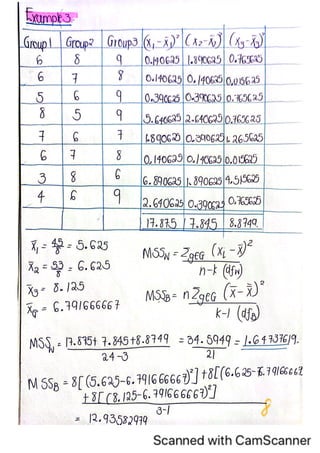 Example 3
Group1 Group2 Group3 (x₁-x̄₁)² (x₂-x̄₂)² (x₃-x̄₃)²
6 8 9 0.140625 1.890625 0.765625
6 7 8 0.140625 0.140625 0.015625
5 6 9 0.390625 0.390625 0.765625
8 5 9 5.640625 2.640625 0.765625
7 6 7 1.890625 0.390625 1.265625
6 7 8 0.140625 0.140625 0.015625
3 8 6 6.890625 1.890625 4.515625
4 6 9 2.640625 0.390625 0.765625
17.875 7.845 8.8749
x̄₁ = 45/8 = 5.625
x̄₂ = 53/8 = 6.625
x̄₃ = 8.125
x̄G = 6.791666667
MSSw = ΣgEG (xᵢ-x̄)²
n-k (dfw)
MSSB = nΣgEG (x̄-x̄)²
k-1 (dfB)
MSSw = 17.875+7.845+8.8749 = 34.5949 = 1.64737619.
24-3 21
MSSB = 8[(5.625-6.791666667)²]+8[(6.625-6.791666667)²]
+8[(8.125-6.791666667)²]
3-1
= 12.93582979
8
Scanned with CamScanner